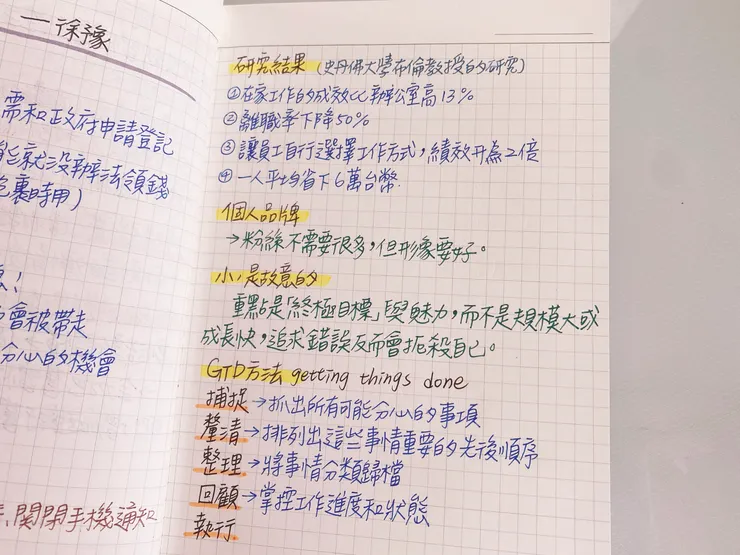 —徐豫
需和政府申請登記
能就没辦法領錢
包裹時用）
！
會被帶走
分心的機會
、關閉手機通知
研究結果（史丹佛大學布倫教授的研究）
①在家工作的成效比辦公室高13%
②離職率下降50%
③讓員工自行選擇工作方式，績效升為2倍
④一人平均省下6萬台幣.
個人品牌
→粉絲不需要很多，但形象要好。
小，是故意的
重點是「終極目標」與魅力，而不是規模大或
成長快，追求錯誤反而會扼殺自己。
GTD方法 getting things done
捕捉→抓出所有可能分心的事項
釐清→排列出這些事情重要的先後順序
整理→將事情分類歸檔
回顧→掌控工作進度和狀態
執行